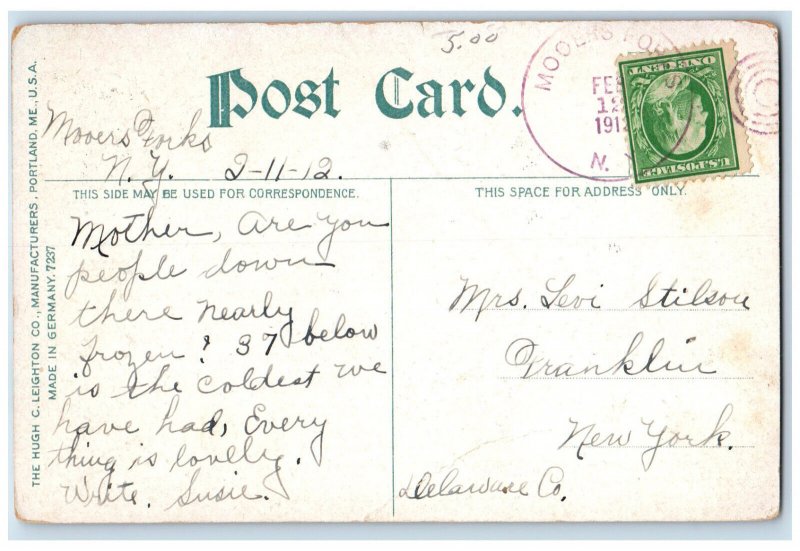 5.00
Post Card.
MOOERS FORKS
FEB
12
1912
N. Y.
ONE CENT
U.S. POSTAGE
Mooers Forks
N. Y. 2-11-12.
THIS SIDE MAY BE USED FOR CORRESPONDENCE.
THIS SPACE FOR ADDRESS ONLY.
Mother, Are you
people down
there nearly
frozen? 37 below
is the coldest we
have had, Every
thing is lovely.
Write. Susie.
Mrs. Levi Stilson
Franklin
New York.
Delaware Co.
THE HUGH C. LEIGHTON CO., MANUFACTURERS, PORTLAND, ME., U.S.A.
MADE IN GERMANY. 7237